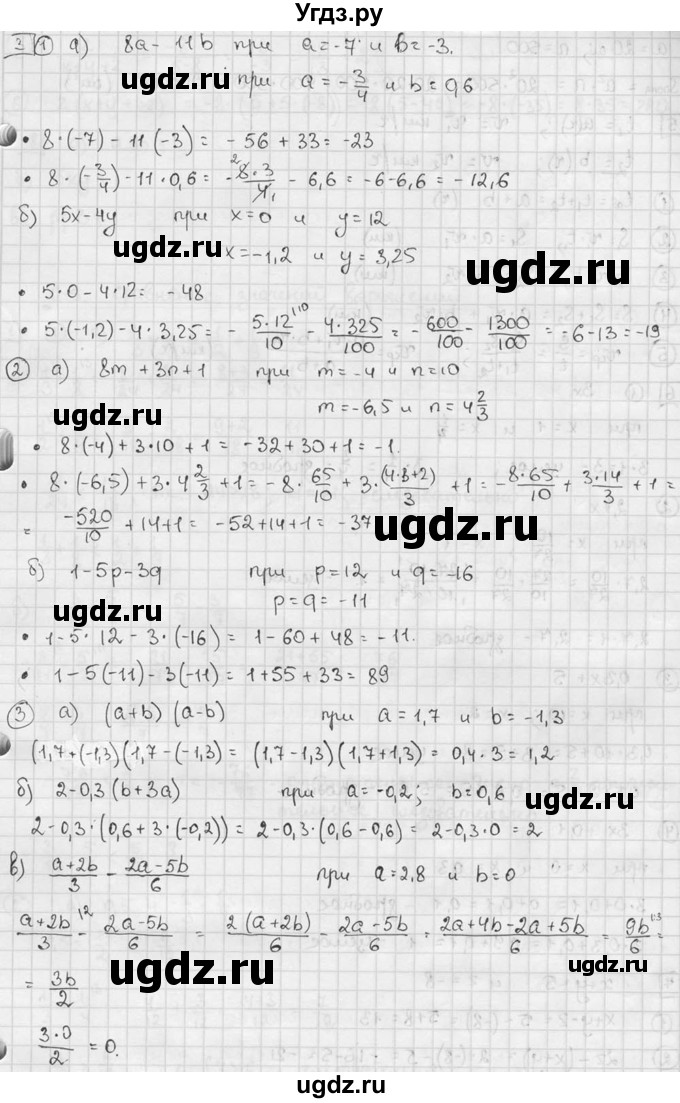 Угдз.ру
3 1 а) 8a - 11b при a = -7 и b = -3.
ugdz.ru при a = -3/4 и b = 0,6
• 8·(-7) - 11(-3) = -56 + 33 = -23
• 8·(-3/4) - 11·0,6 = -8·3/4 - 6,6 = -6-6,6 = -12,6
б) 5x-4y при x=0 и y=12
ugdz.ru x=-1,2 и y=3,25 ugdz.ru
• 5·0 - 4·12 = -48
• 5·(-1,2) - 4·3,25 = -5·12/10 - 4·325/100 = -600/100 - 1300/100 = -6-13 = -19
2 а) 8m + 3n + 1 при m = -4 и n = 10
ugdz.ru m = -6,5 и n = 4 2/3
• 8·(-4) + 3·10 + 1 = -32+30+1 = -1.
• 8·(-6,5) + 3·4 2/3 + 1 = -8·65/10 + 3·(4·3+2)/3 + 1 = -8·65/10 + 3·14/3 + 1 =
= -520/10 + 14+1 = -52+14+1 = -37 ugdz.ru
б) 1-5p-3q при p=12 и q=-16
ugdz.ru p=q=-11
• 1-5·12-3·(-16) = 1-60+48 = -11.
• 1-5(-11)-3(-11) = 1+55+33 = 89
3 а) (a+b)(a-b) при a = 1,7 и b = -1,3
(1,7+(-1,3)(1,7-(-1,3) = (1,7-1,3)(1,7+1,3) = 0,4·3 = 1,2
б) 2-0,3(b+3a) при a=-0,2; b=0,6 ugdz.ru
2-0,3·(0,6+3·(-0,2)) = 2-0,3·(0,6-0,6) = 2-0,3·0 = 2
в) a+2b/3 - 2a-5b/6 при a=2,8 и b=0
a+2b/3 - 2a-5b/6 = 2(a+2b)/6 - 2a-5b/6 = 2a+4b-2a+5b/6 = 9b/6 =
= 3b/2 ugdz.ru ugdz.ru
3·0/2 = 0.
ugdz.ru